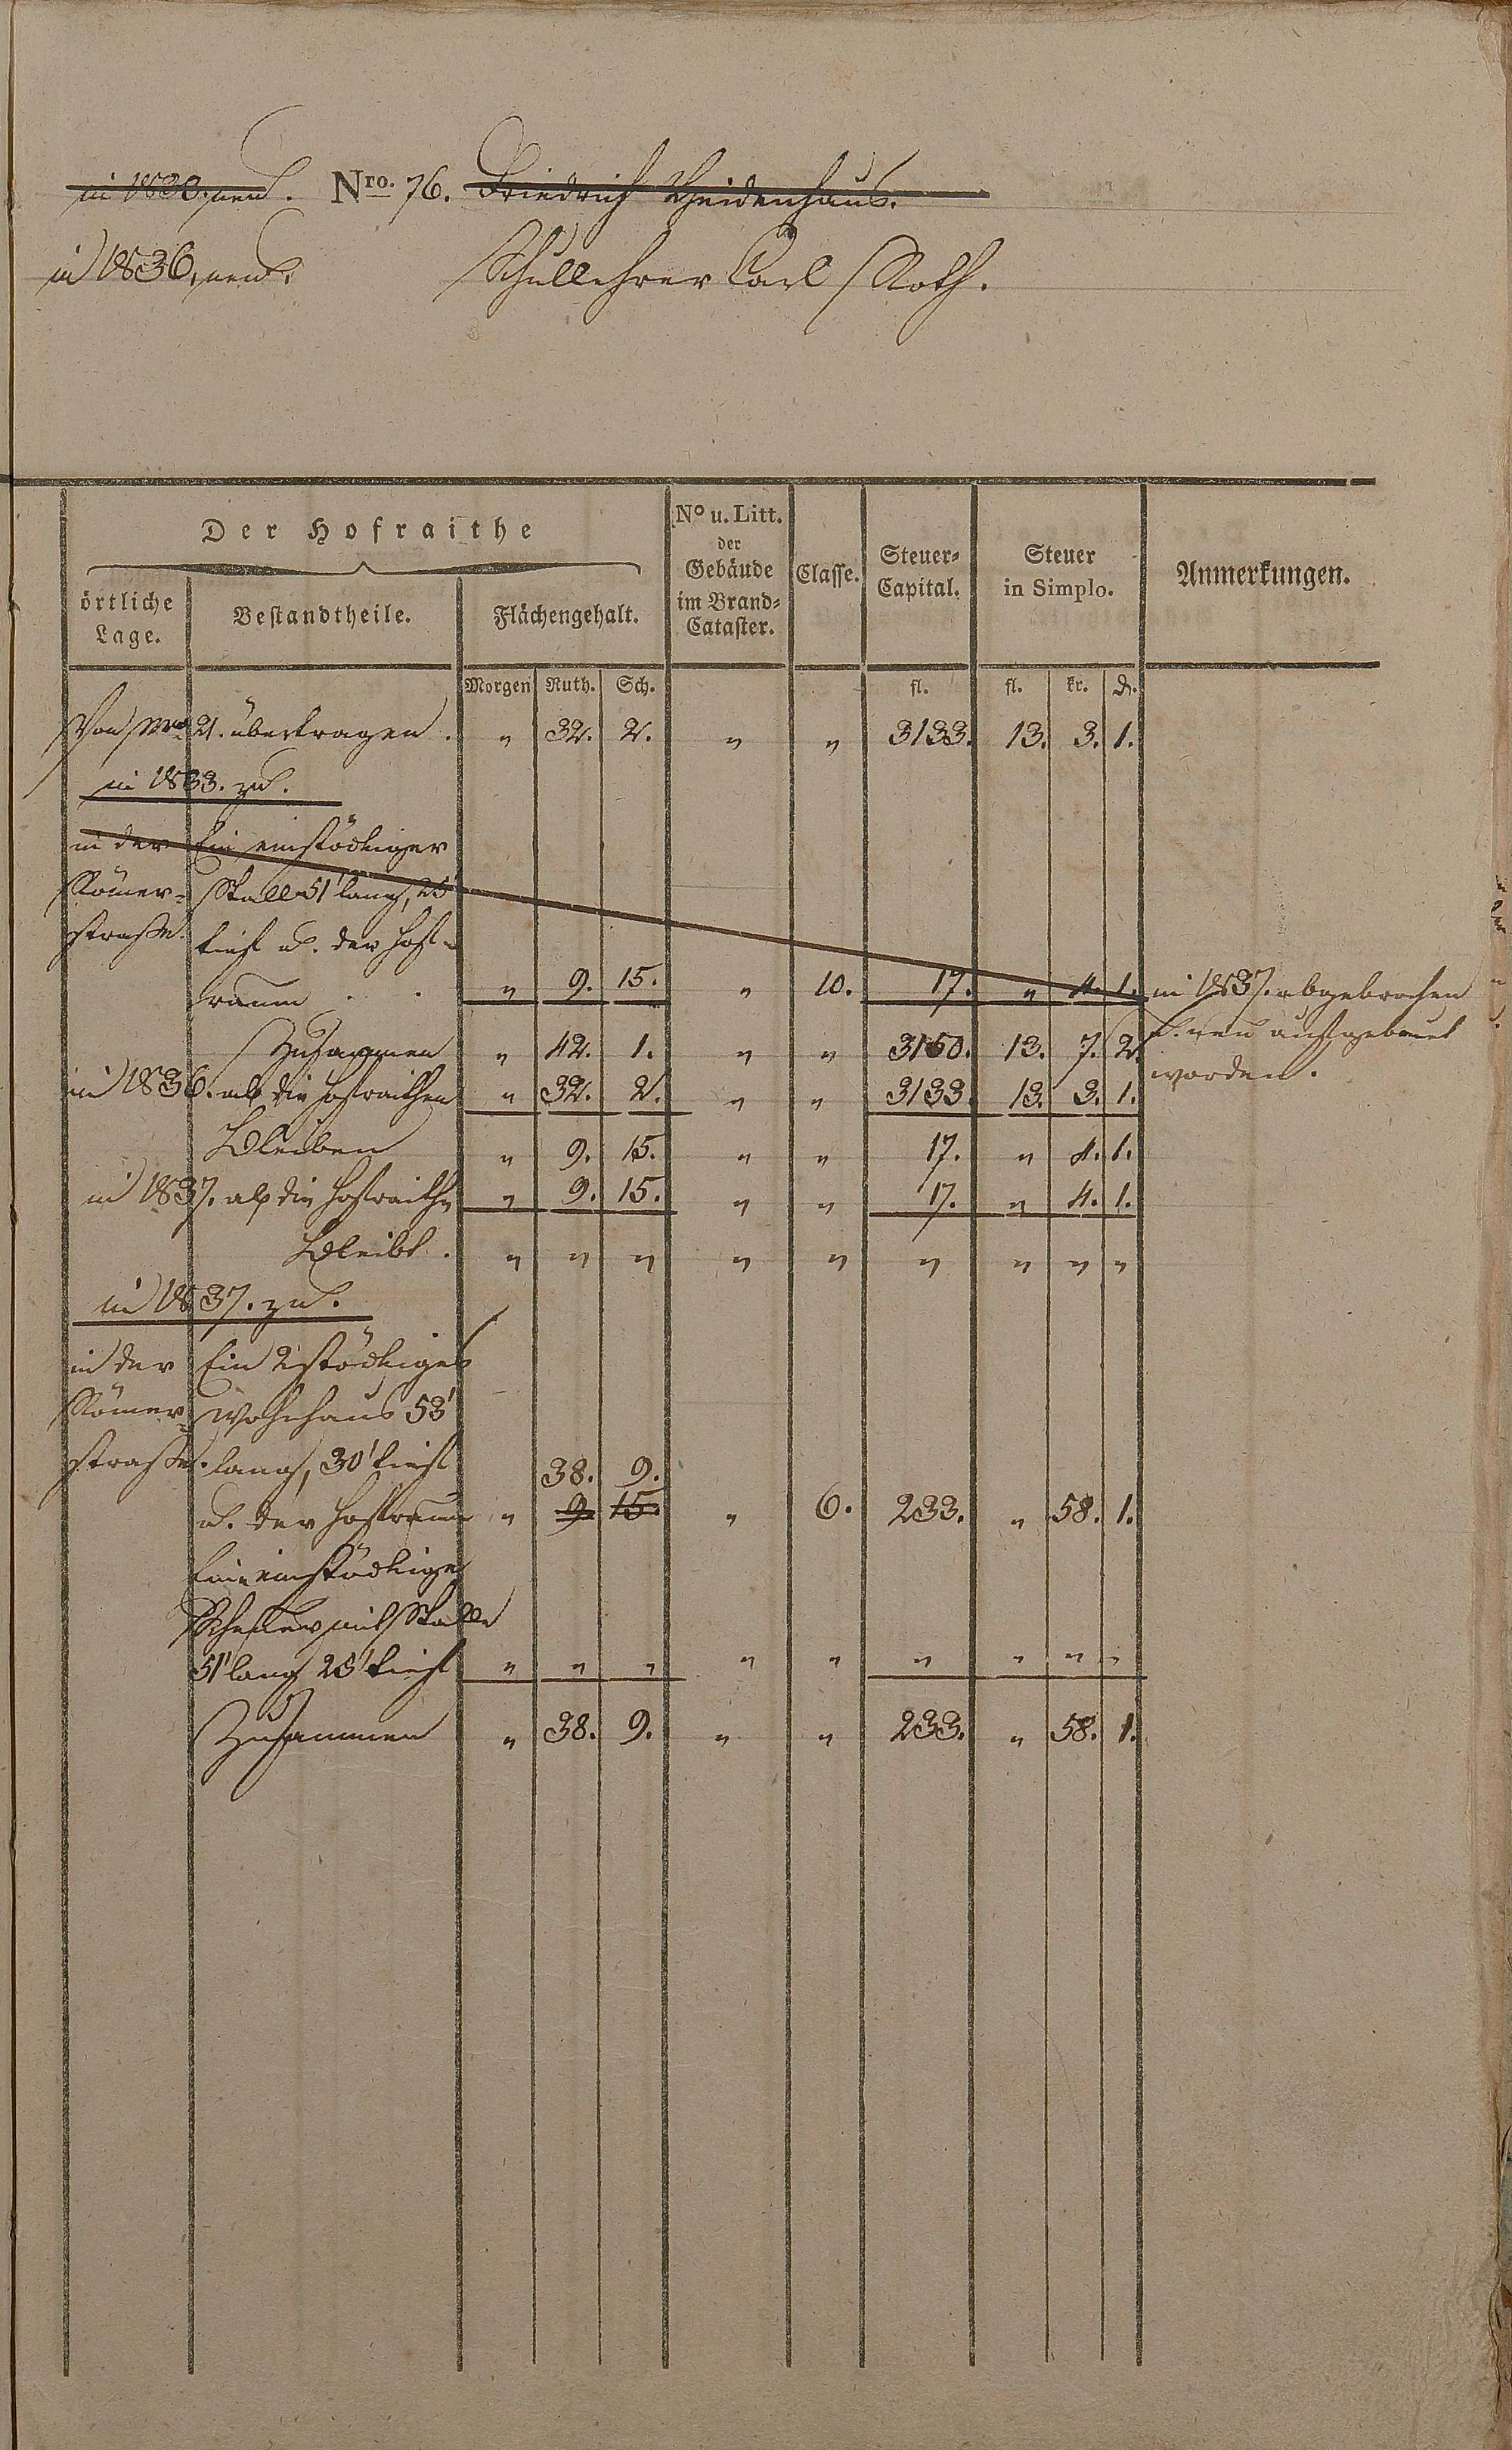 in 1830. neu. Nro. 76. Friedrich Weidenhaus.
in 1836. neu. Schullehrer Carl Roth.
Der Hofraithe
örtliche Lage.
Bestandtheile.
Flächengehalt.
No u. Litt. der Gebäude im Brand-Cataster.
Classe.
Steuer-Capital.
Steuer in Simplo.
Anmerkungen.
Morgen Ruth. Sch. fl. fl. kr. d.
Von Nro 21. übertragen. " 32. 2. " " 3133. 13. 3. 1.
in 1833. zu.
in der Ein einstöckiger
Römer- Stall 51' lang, 25'
straße. tief u. der Hof-
raum . . " 9. 15. " 10. 17. " 4. 1. in 1837. abgebrochen
u. neu aufgebaut
worden.
Zusammen " 42. 1. " " 3150. 13. 7. 2.
in 1836. ab die Hofraithen " 32. 2. " " 3133. 13. 3. 1.
Bleiben " 9. 15. " " 17. " 4. 1.
in 1837. ab die Hofraithe " 9. 15. " " 17. " 4. 1.
Bleibt. " " " " " " " " "
in 1837. zu.
in der Ein 2stöckiges
Römer- Wohnhaus 53'
straße. lang, 30' tief 38. 9.
u. der Hofraum " 9. 15. " 6. 233. " 58. 1.
Eine einstöckige
Scheuer mit Stall
51' lang 25' tief " " " " " " " " "
Zusammen " 38. 9. " " 233. " 58. 1.